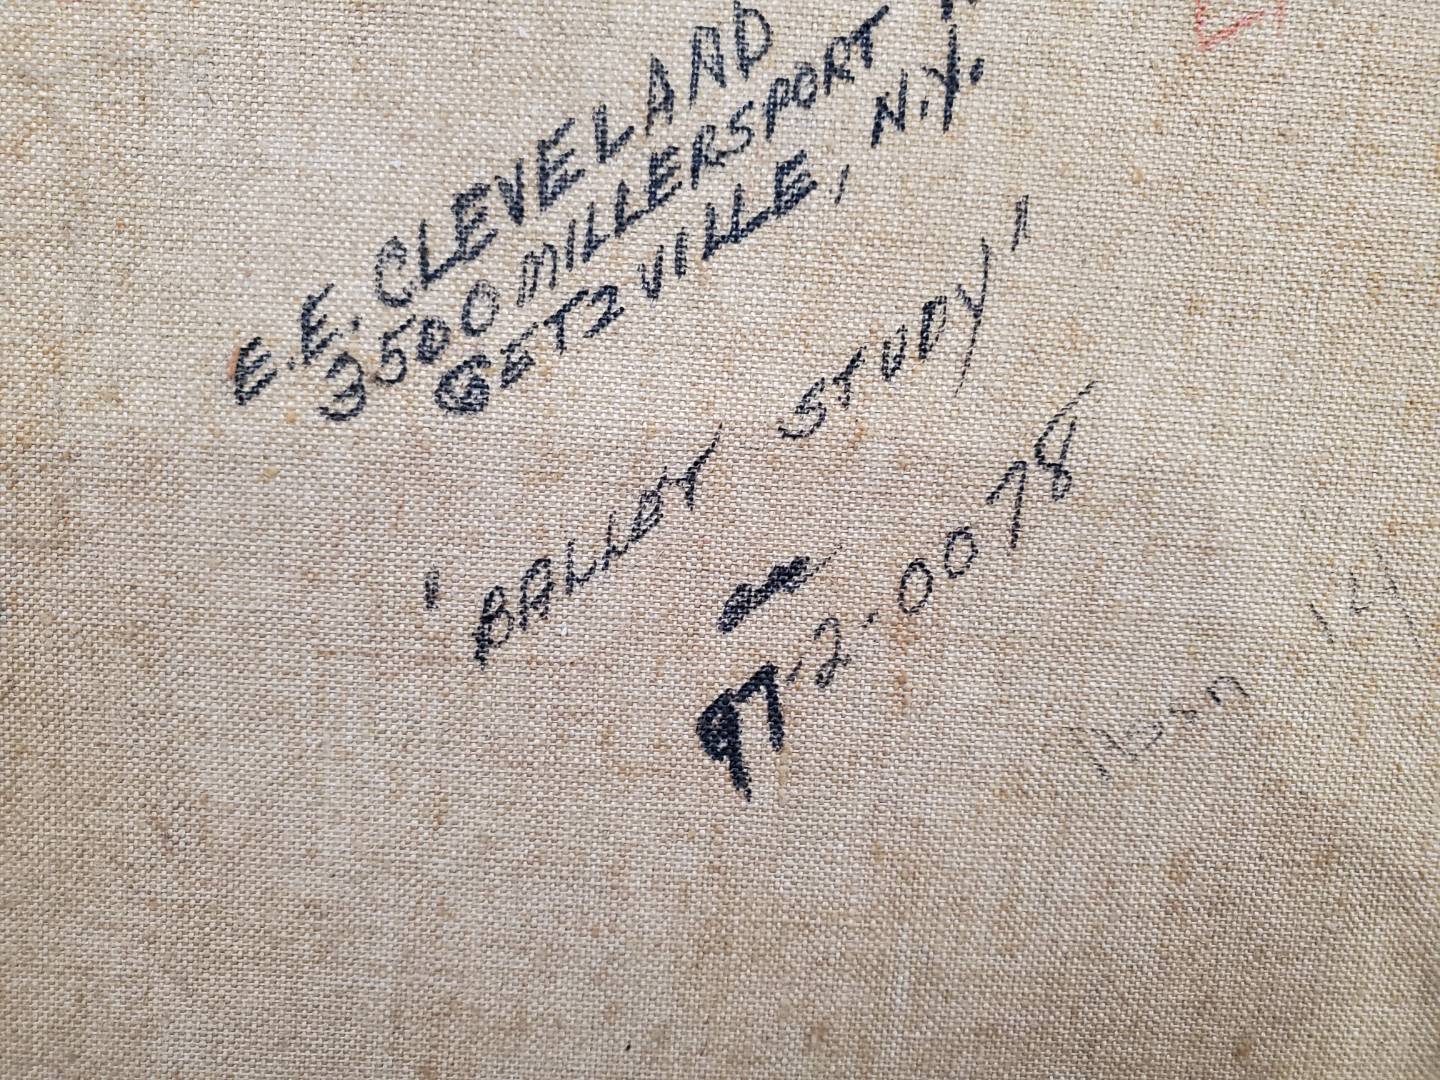 E.E. CLEVELAND
3500 MILLERSPORT
GETZVILLE, N.Y.
"BALLET STUDY"
97-2-0078